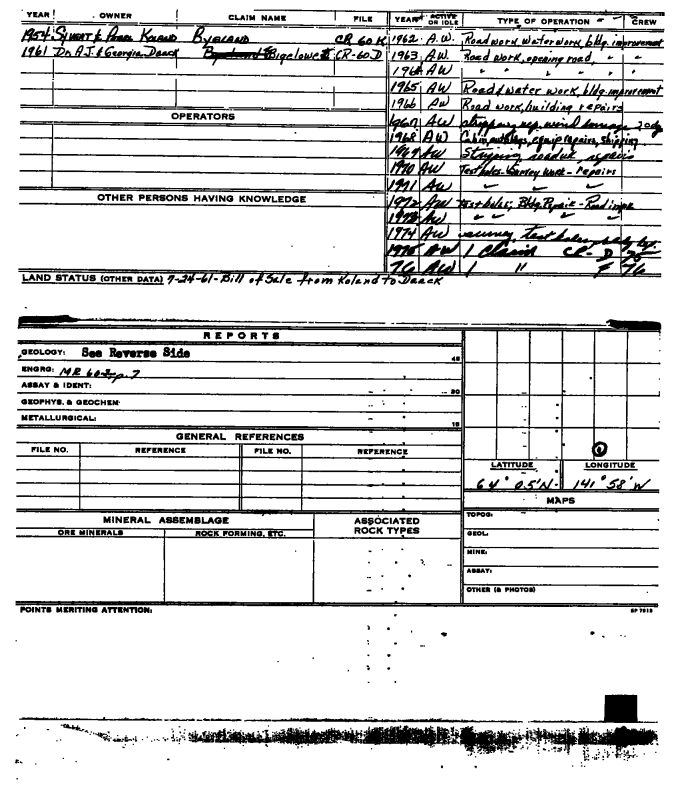 YEAR OWNER CLAIM NAME FILE YEAR ACTIVE OR IDLE TYPE OF OPERATION CREW
1954 Stuart & Pearl Koland Byeland CR 60 K 1962 A.W. Road work, water work, bldg. improvement
1961 Dr. A.J. & Georgia Daack Bigelow CR-60D 1963 A.W. Road work, opening road, " "
1964 AW " " " "
1965 AW Road & water work, bldg. improvement
1966 AW Road work, building repairs
OPERATORS
1967 AW stripping, rep. wind damage
1968 AW Cabin, equip repairs, shipping
1969 AW Striping, repairs
1970 AW Test holes - Survey Work - repairs
1971 AW " " "
OTHER PERSONS HAVING KNOWLEDGE
1972 AW test holes, Bldg. Repair - Road
1973 AW " " " "
1974 AW survey, test holes,
1975 AW 1 Claim CR- D 75
76 AW 1 " F 76
LAND STATUS (OTHER DATA) 7-24-61-Bill of Sale from Koland to Daack
REPORTS
GEOLOGY: See Reverse Side 45
ENGRG: MR 60-2, p. 7
ASSAY & IDENT: 30
GEOPHYS. & GEOCHEM:
METALLURGICAL: 15
GENERAL REFERENCES
FILE NO. REFERENCE FILE NO. REFERENCE
LATITUDE LONGITUDE
64° 05'N. 141° 58'W
MAPS
MINERAL ASSEMBLAGE ASSOCIATED ROCK TYPES
ORE MINERALS ROCK FORMING, ETC.
TOPOG:
GEOL:
MINE:
ASSAY:
OTHER (& PHOTOS)
POINTS MERITING ATTENTION: